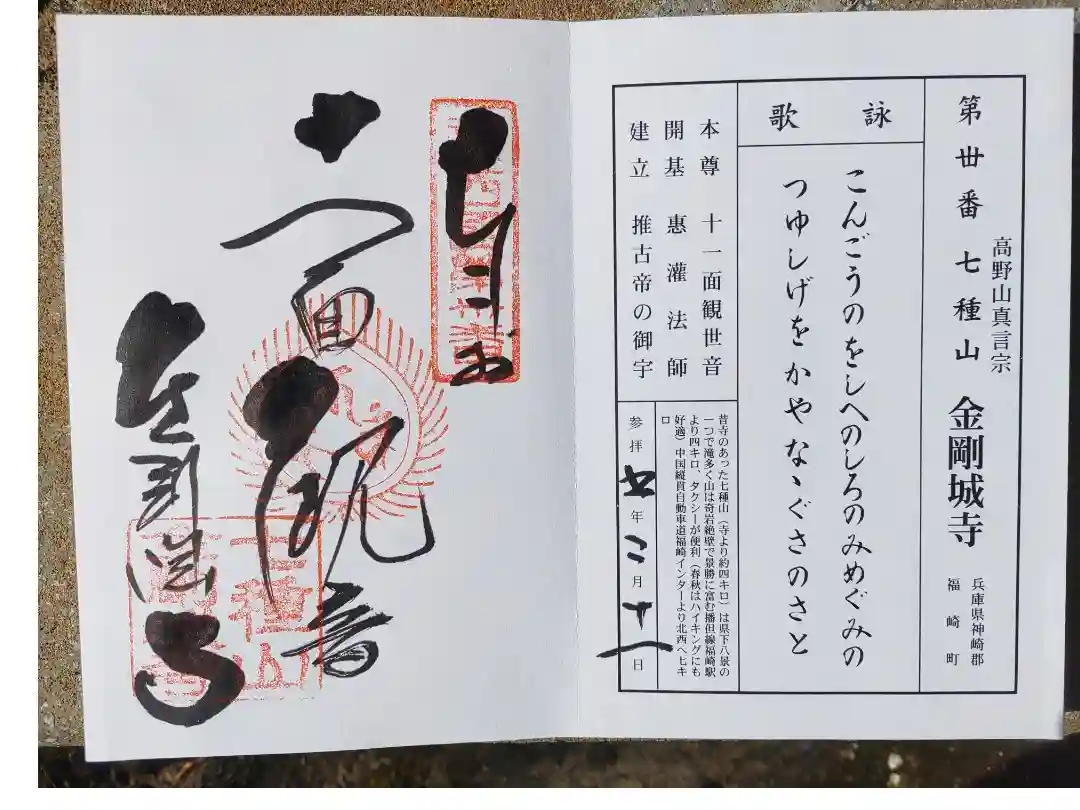 高野山真言宗
第丗番 七種山 金剛城寺
兵庫県神崎郡
福崎町
詠歌
こんごうのをしへのしろのみめぐみの
つゆしげをかやなゝぐさのさと
本尊 十一面観世音
開基 惠灌法師
建立 推古帝の御宇
昔寺のあった七種山（寺より約四キロ）は県下八景の
一つで滝多く山は奇岩絶壁で景勝に富む播但線福崎駅
より四キロ、タクシーが便利（春秋はハイキングにも
好適）中国縦貫自動車道福崎インターより北西へ七キ
ロ
参拝 五年二月十一日
十一面観音
金剛城寺